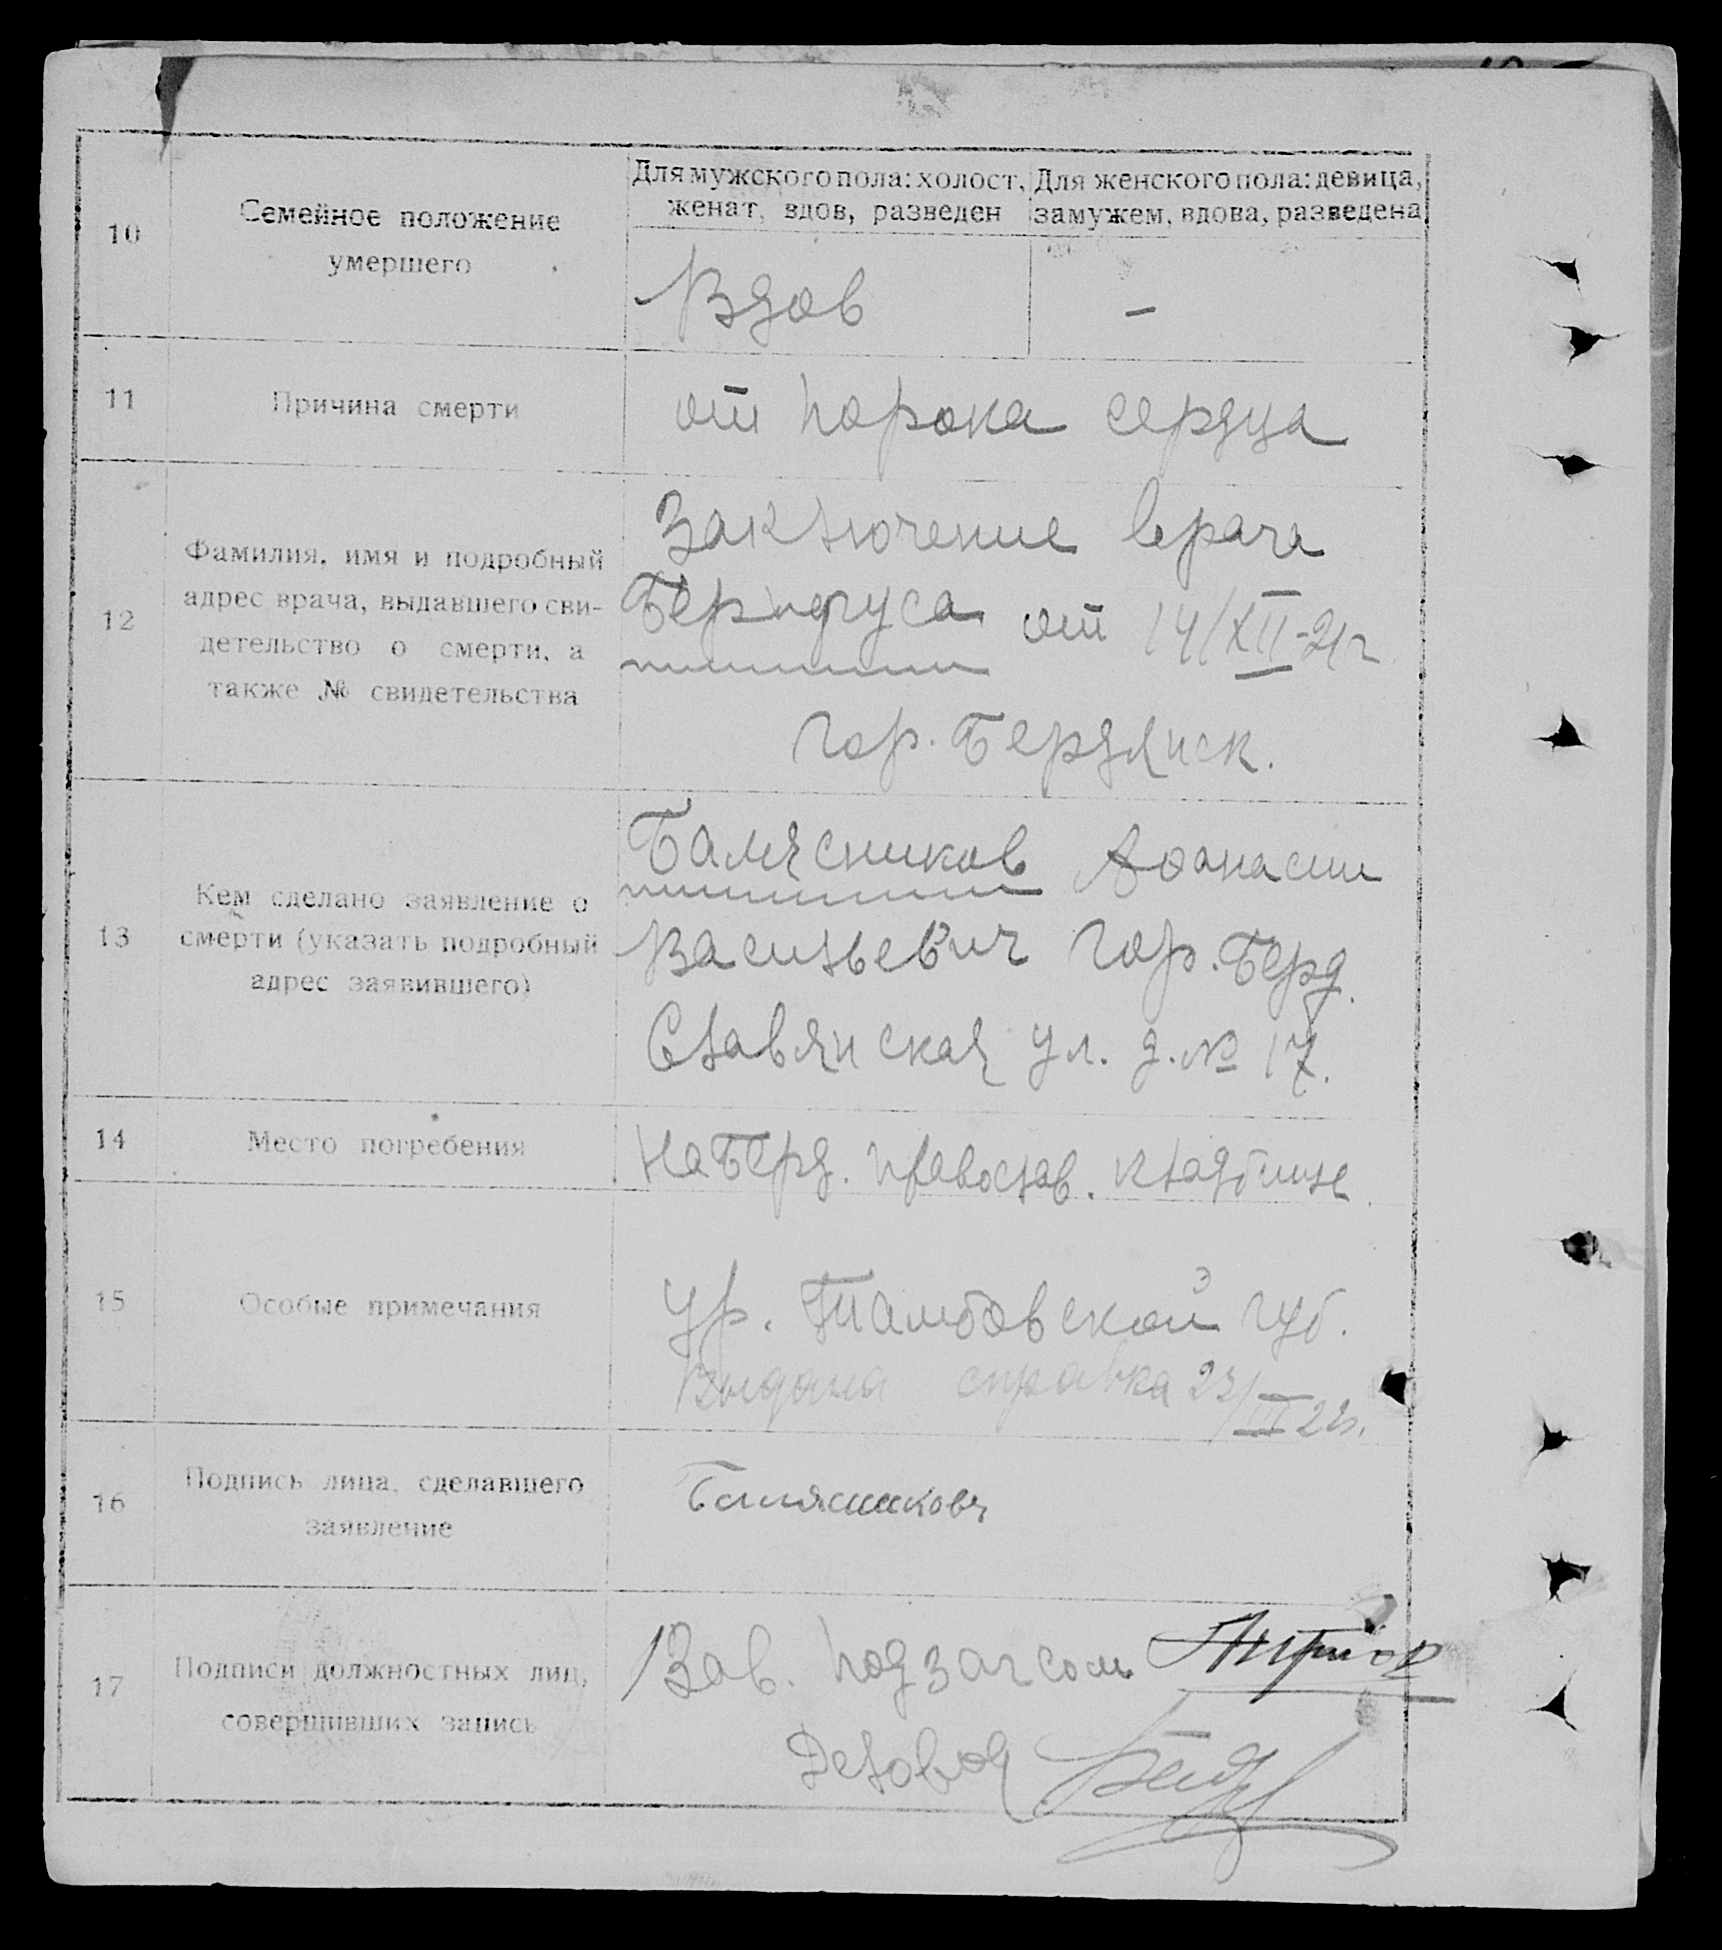 Для мужского пола: холост, женат, вдов, разведен
Для женского пола: девица, замужем, вдова, разведена
10
Семейное положение
умершего
Вдов
–
11
Причина смерти
от порока сердца
12
Фамилия, имя и подробный
адрес врача, выдавшего сви-
детельство о смерти, а
также № свидетельства
Заключение врача
от 14/XII-21г
гор. Бердянск.
13
Кем сделано заявление о
смерти (указать подробный
адрес заявившего)
Балясников Афанасии
Васильевич гор. Берд.
Славянская ул. д. № 17.
14
Место погребения
На Берд. православ. кладбище
15
Особые примечания
ур. Тамбовской губ.
Выдана справка 23/III 22г.
16
Подпись лица, сделавшего
заявление
Балясниковъ
17
Подписи должностных лиц,
совершивших запись
Зав. подзагсом
Деловод